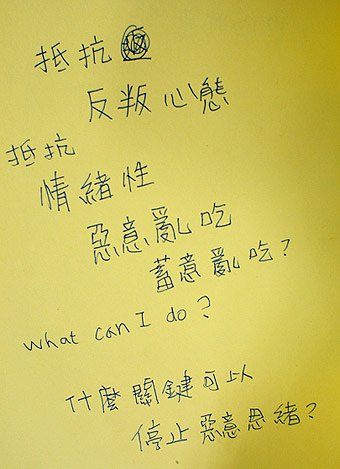 抵抗
反叛心態
抵抗
情緒性
惡意亂吃
蓄意亂吃?
What can I do?
什麼關鍵可以
停止惡意思緒?